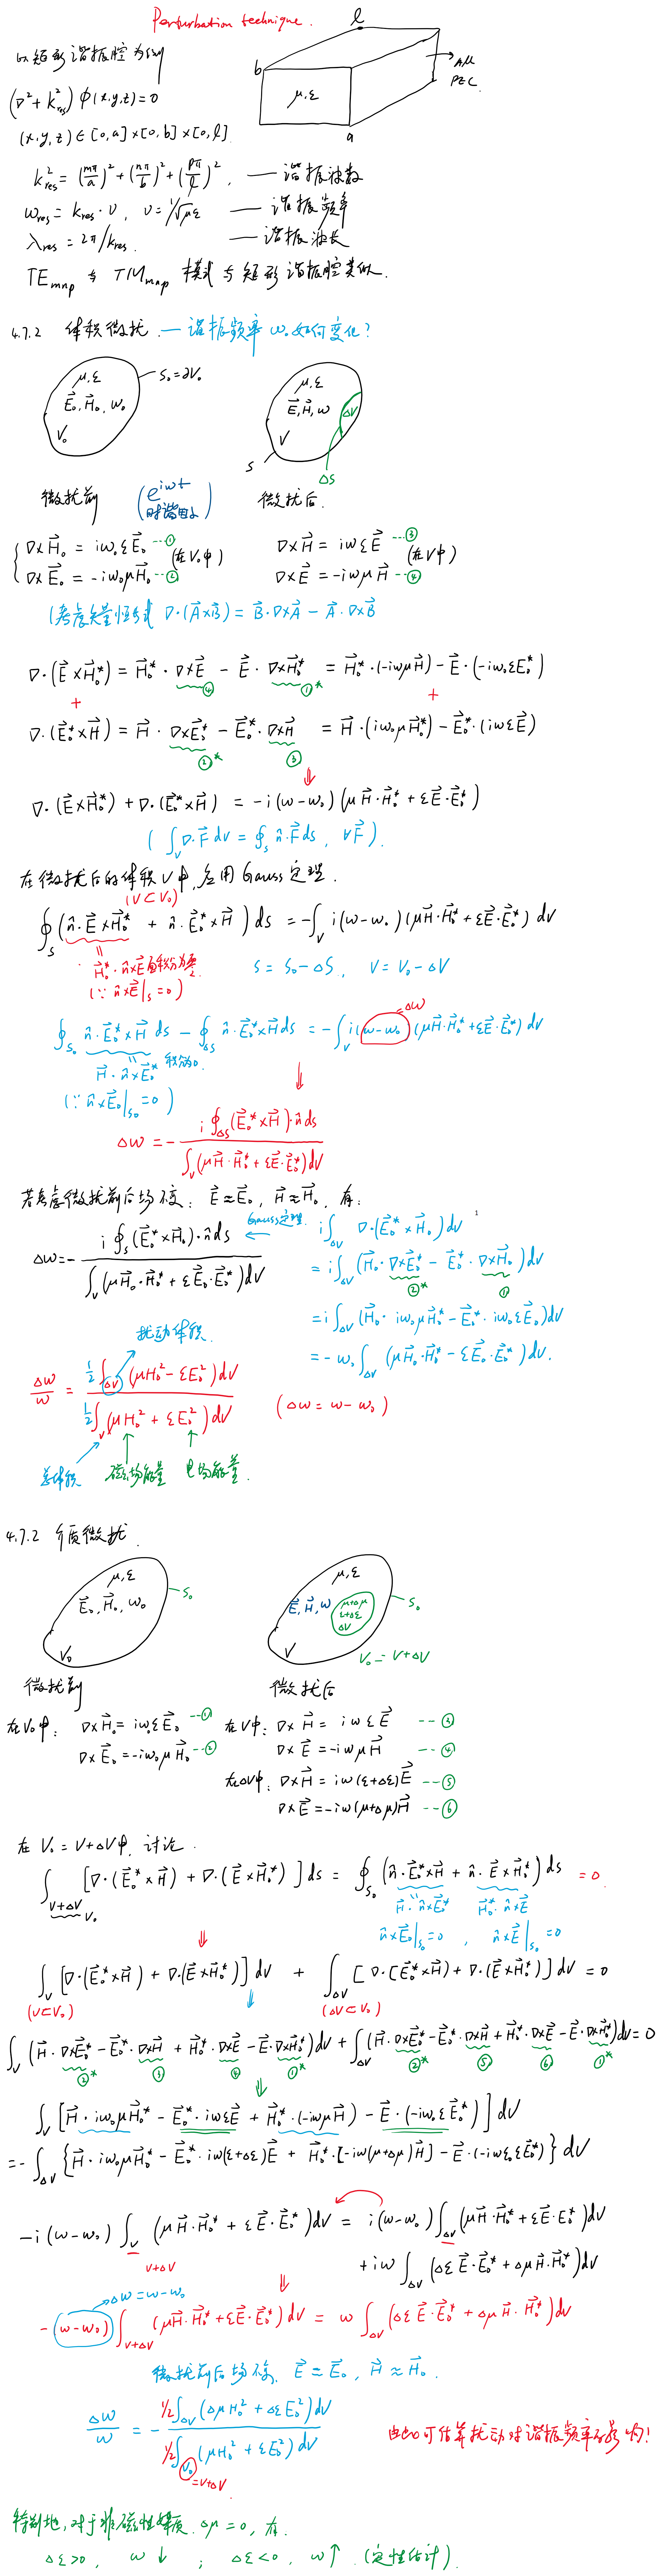 Perturbation technique.
以矩形谐振腔为例
(∇²+k²res)φ(x,y,z)=0
(x,y,z)∈[0,a]×[0,b]×[0,l]
l
b
μ,ε
a
PEC
k²res = (mπ/a)² + (nπ/b)² + (pπ/l)², — 谐振波数
ωres = kres·v, v=1/√με — 谐振频率
λres = 2π/kres. — 谐振波长
TEmnp 与 TMmnp 模式与矩形谐振腔类似.
4.7.2 体积微扰 — 谐振频率 ω₀如何变化?
μ,ε
E⃗₀,H⃗₀,ω₀
V₀
S₀=∂V₀
μ,ε
E⃗,H⃗,ω
V
ΔV
S
ΔS
微扰前 (e^{iωt} 时谐因子) 微扰后
∇×H⃗₀ = iω₀εE⃗₀ --① (在V₀中) ∇×H⃗ = iωεE⃗ --③ (在V中)
∇×E⃗₀ = -iω₀μH⃗₀ --② ∇×E⃗ = -iωμH⃗ --④
(考虑矢量恒等式 ∇·(A⃗×B⃗) = B⃗·∇×A⃗ - A⃗·∇×B⃗
∇·(E⃗×H⃗₀*) = H⃗₀*·∇×E⃗ - E⃗·∇×H⃗₀* = H⃗₀*·(-iωμH⃗) - E⃗·(-iω₀εE₀*)
④ ①*
+ +
∇·(E⃗₀*×H⃗) = H⃗·∇×E⃗₀* - E⃗₀*·∇×H⃗ = H⃗·(iω₀μH⃗₀*) - E⃗₀*·(iωεE⃗)
②* ③
⇓
∇·(E⃗×H⃗₀*) + ∇·(E⃗₀*×H⃗) = -i(ω-ω₀)(μH⃗·H⃗₀* + εE⃗·E⃗₀*)
(∫_V ∇·F⃗ dV = ∮_S n̂·F⃗ ds, ∀F⃗).
在微扰后的体积V中,应用Gauss定理.
(V⊂V₀)
∮_S (n̂·E⃗×H⃗₀* + n̂·E⃗₀*×H⃗) ds = -∫_V i(ω-ω₀)(μH⃗·H⃗₀* + εE⃗·E⃗₀*) dV
H⃗₀*·n̂×E⃗ 面积分为零. S = S₀-ΔS, V = V₀-ΔV
(∵ n̂×E⃗|_S=0)
Δω
∮_{S₀} n̂·E⃗₀*×H⃗ ds - ∮_{ΔS} n̂·E⃗₀*×H⃗ ds = -∫_V i(ω-ω₀)(μH⃗·H⃗₀* + εE⃗·E⃗₀*) dV
H⃗·n̂×E⃗₀* 积分为0.
(∵ n̂×E⃗₀|_{S₀}=0)
⇓
Δω = - i∮_{ΔS}(E⃗₀*×H⃗)·n̂ds / ∫_V(μH⃗·H⃗₀* + εE⃗·E⃗₀*)dV
若考虑微扰前后场不变: E⃗≈E⃗₀, H⃗≈H⃗₀, 有:
Δω = - i∮_S(E⃗₀*×H⃗₀)·n̂ds / ∫_V(μH⃗₀·H⃗₀* + εE⃗₀·E⃗₀*)dV
Gauss定理 i∫_{ΔV} ∇·(E⃗₀*×H⃗₀)dV
= i∫_{ΔV}(H⃗₀·∇×E⃗₀* - E⃗₀*·∇×H⃗₀)dV
②* ①
= i∫_{ΔV}(H⃗₀·iω₀μH⃗₀* - E⃗₀*·iω₀εE⃗₀)dV
= -ω₀∫_{ΔV}(μH⃗₀·H⃗₀* - εE⃗₀·E⃗₀*)dV.
扰动体积.
Δω/ω = ½∫_{ΔV}(μH₀² - εE₀²)dV / ½∫_V(μH₀² + εE₀²)dV (Δω = ω-ω₀)
总体积 磁场能量 电场能量.
4.7.2 介质微扰.
μ,ε
E⃗₀,H⃗₀,ω₀
V₀
S₀
μ,ε
E⃗,H⃗,ω
μ+Δμ
ε+Δε
ΔV
V
S₀
V₀ = V+ΔV
微扰前 微扰后
在V₀中: ∇×H⃗₀ = iω₀εE⃗₀ --① 在V中: ∇×H⃗ = iωεE⃗ --③
∇×E⃗₀ = -iω₀μH⃗₀ --② ∇×E⃗ = -iωμH⃗ --④
在ΔV中: ∇×H⃗ = iω(ε+Δε)E⃗ --⑤
∇×E⃗ = -iω(μ+Δμ)H⃗ --⑥
在 V₀=V+ΔV中, 讨论.
∫_{V+ΔV} [∇·(E⃗₀*×H⃗) + ∇·(E⃗×H⃗₀*)] ds = ∮_{S₀}(n̂·E⃗₀*×H⃗ + n̂·E⃗×H⃗₀*) ds = 0
V₀ H⃗·n̂×E⃗₀* H⃗₀*·n̂×E⃗
n̂×E⃗₀|_{S₀}=0, n̂×E⃗|_{S₀}=0
⇓
∫_V [∇·(E⃗₀*×H⃗) + ∇·(E⃗×H⃗₀*)] dV + ∫_{ΔV} [∇·(E⃗₀*×H⃗) + ∇·(E⃗×H⃗₀*)] dV = 0
(V⊂V₀) (ΔV⊂V₀)
∫_V (H⃗·∇×E⃗₀* - E⃗₀*·∇×H⃗ + H⃗₀*·∇×E⃗ - E⃗·∇×H⃗₀*)dV + ∫_{ΔV}(H⃗·∇×E⃗₀* - E⃗₀*·∇×H⃗ + H⃗₀*·∇×E⃗ - E⃗·∇×H⃗₀*)dV = 0
②* ③ ④ ①* ②* ⑤ ⑥ ①*
∫_V [H⃗·iω₀μH⃗₀* - E⃗₀*·iωεE⃗ + H⃗₀*·(-iωμH⃗) - E⃗·(-iω₀εE⃗₀*)] dV
= -∫_{ΔV} {H⃗·iω₀μH⃗₀* - E⃗₀*·iω(ε+Δε)E⃗ + H⃗₀*·[-iω(μ+Δμ)H⃗] - E⃗·(-iω₀εE⃗₀*)} dV
-i(ω-ω₀)∫_V (μH⃗·H⃗₀* + εE⃗·E⃗₀*)dV = i(ω-ω₀)∫_{ΔV}(μH⃗·H⃗₀* + εE⃗·E₀*)dV
V+ΔV + iω∫_{ΔV}(ΔεE⃗·E⃗₀* + ΔμH⃗·H⃗₀*)dV
Δω=ω-ω₀ ⇓
-(ω-ω₀)∫_{V+ΔV}(μH⃗·H⃗₀* + εE⃗·E⃗₀*)dV = ω∫_{ΔV}(ΔεE⃗·E⃗₀* + ΔμH⃗·H⃗₀*)dV
微扰前后场不变, E⃗≈E⃗₀, H⃗≈H⃗₀.
Δω/ω = - ½∫_{ΔV}(ΔμH₀² + ΔεE₀²)dV / ½∫_{V₀}(μH₀² + εE₀²)dV
=V+ΔV
由此可估算扰动对谐振频率的影响!
特别地,对于非磁性媒质, Δμ=0, 有.
Δε>0, ω↓ ; Δε<0, ω↑. (定性估计).